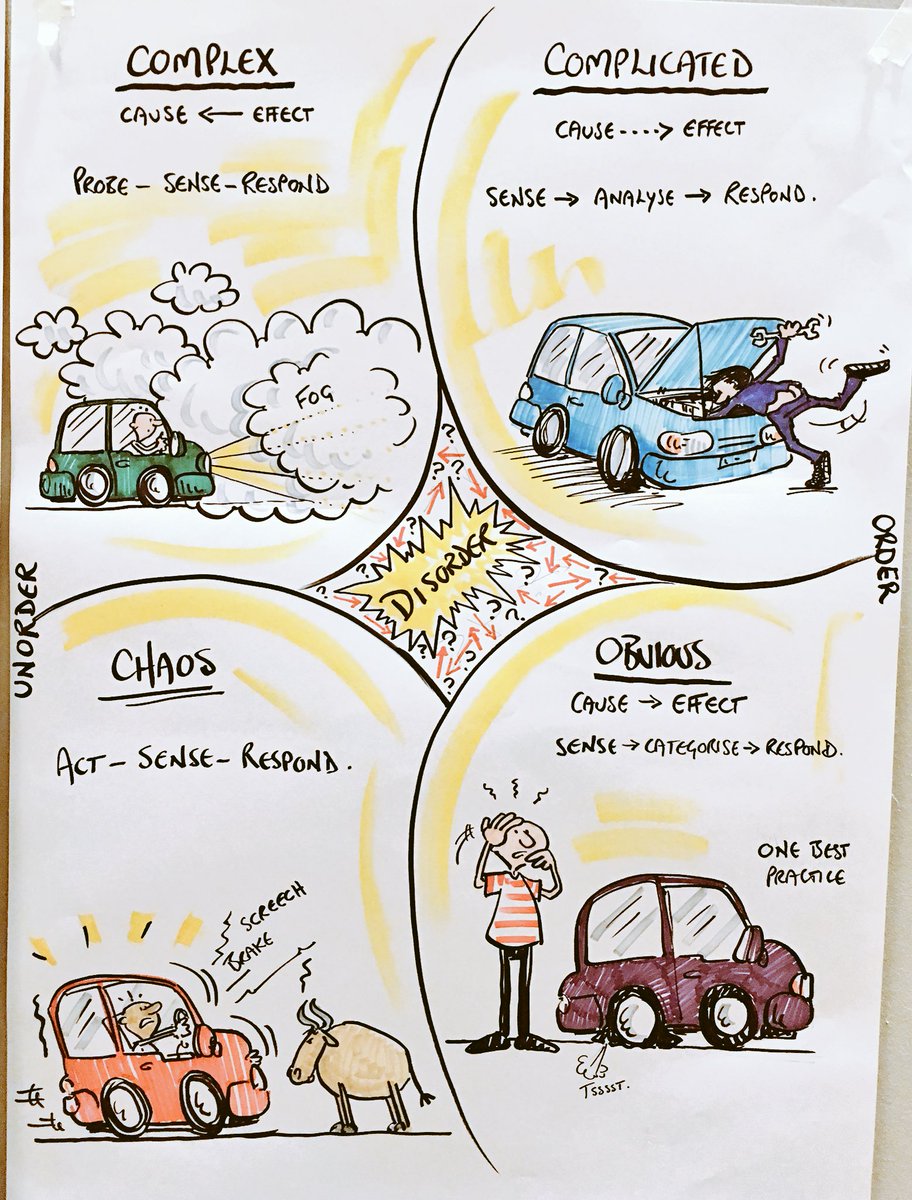 COMPLEX
CAUSE ← EFFECT
PROBE – SENSE – RESPOND
FOG
COMPLICATED
CAUSE ----> EFFECT
SENSE → ANALYSE → RESPOND.
UNORDER
DISORDER
ORDER
CHAOS
ACT – SENSE – RESPOND.
SCREECH
BRAKE
OBVIOUS
CAUSE → EFFECT
SENSE → CATEGORISE → RESPOND.
ONE BEST
PRACTICE
TSSSST.